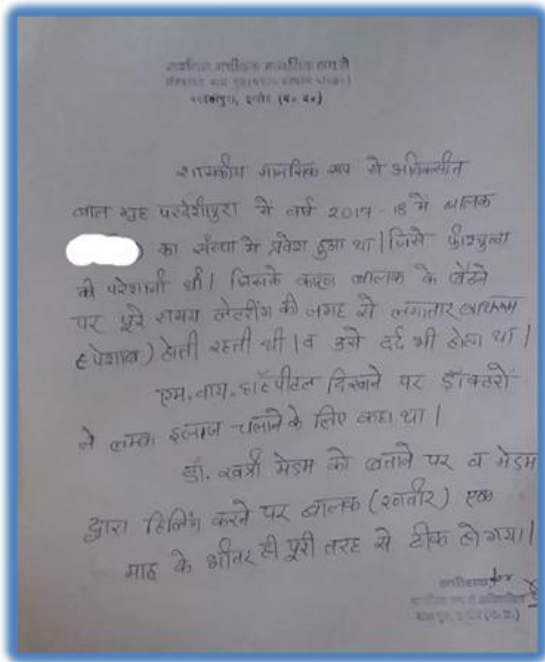 मानसिक रूप से
परदेशीपुरा, इन्दौर (म. प्र.)
शासकीय मानसिक रूप से अविकसीत
बाल गृह परदेशीपुरा में वर्ष 2017-18 में बालक
का संस्था में प्रवेश हुआ था। जिसे फीश्चुला
की परेशानी थी। जिसके कारण बालक के बैठने
पर पूरे समय लेटरींग की जगह से लगातार बाथरूम
(पेशाब) होती रहती थी। व उसे दर्द भी होता था।
एम.वाय.हॉस्पीटल दिखाने पर डॉक्टरों
ने लम्बा इलाज चलाने के लिए कहा था।
डॉ. खत्री मेडम को बताने पर व मेडम
द्वारा हिलिंग करने पर बालक एक
माह के भीतर ही पूरी तरह से ठीक हो गया।